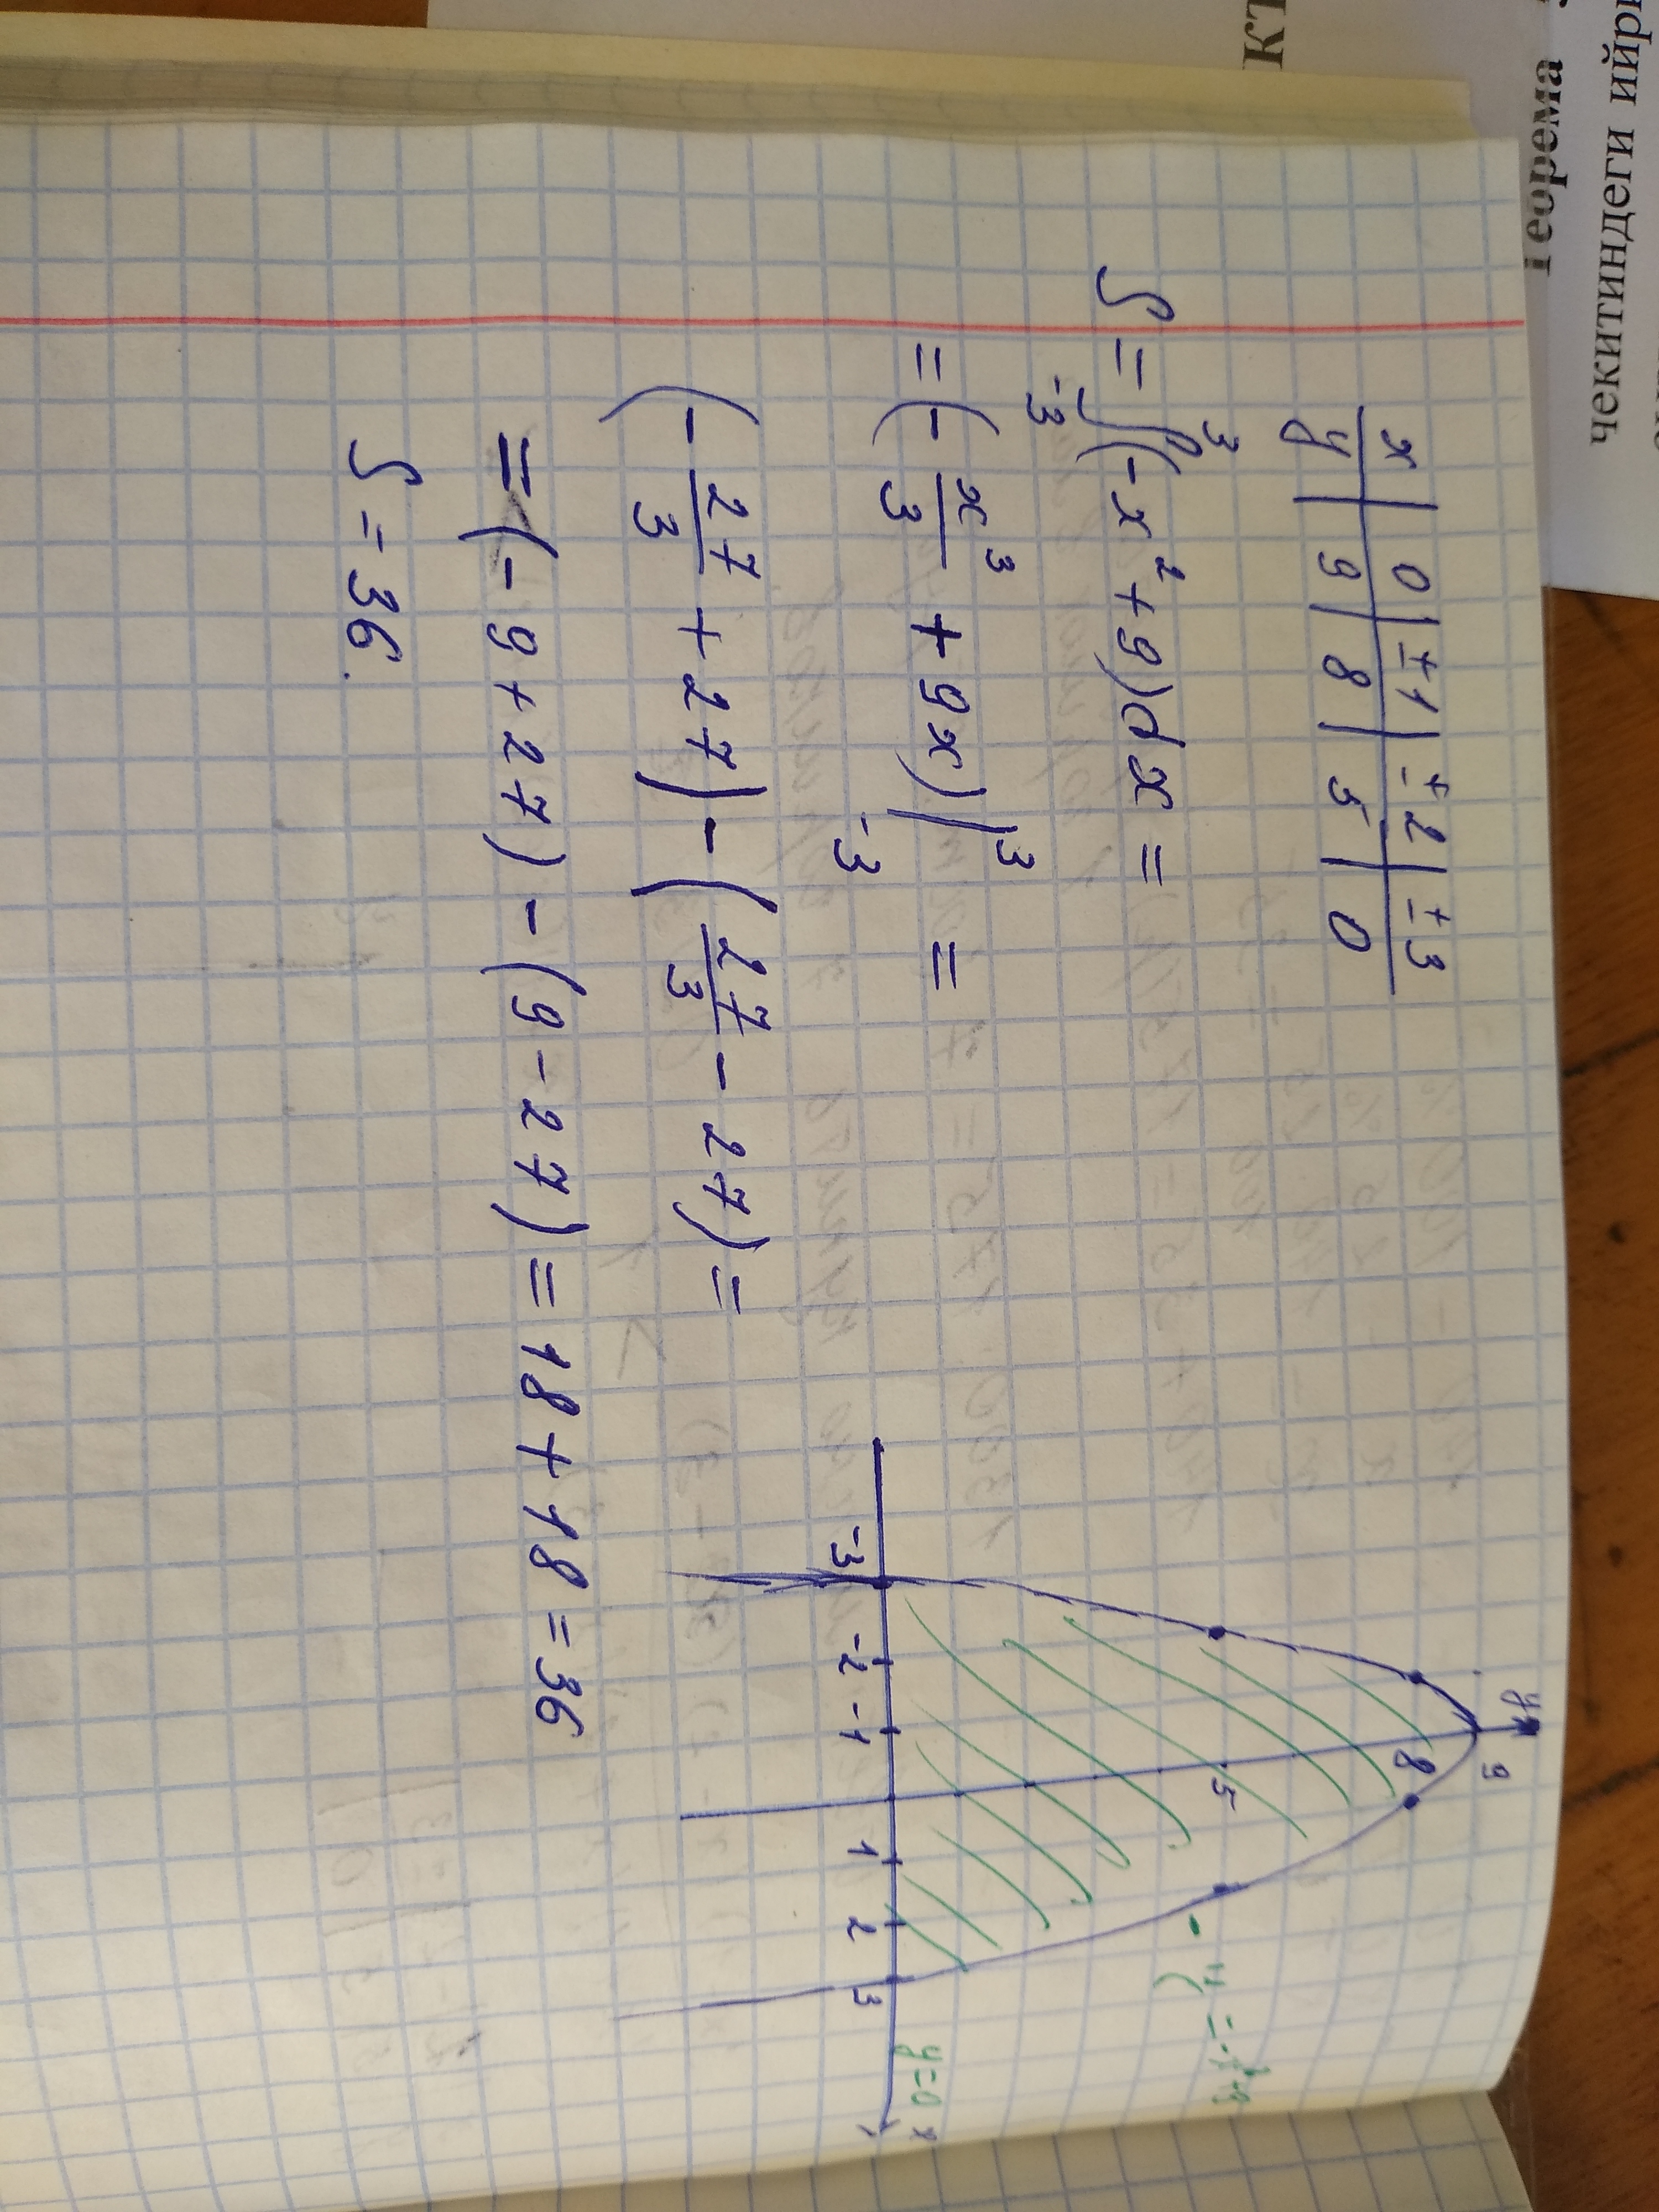 x | 0 | ±1 | ±2 | ±3
y | 9 | 8 | 5 | 0
S = ∫₋₃³ (-x² + 9) dx =
= (- x³/3 + 9x) |₋₃³ =
(- 27/3 + 27) - (27/3 - 27) =
= (- 9 + 27) - (9 - 27) = 18 + 18 = 36
S = 36.
y
9
8
5
-3 -2 -1 1 2 3
y=0 x
y = -x²+9
КТ
Теорема
чекитиндеги